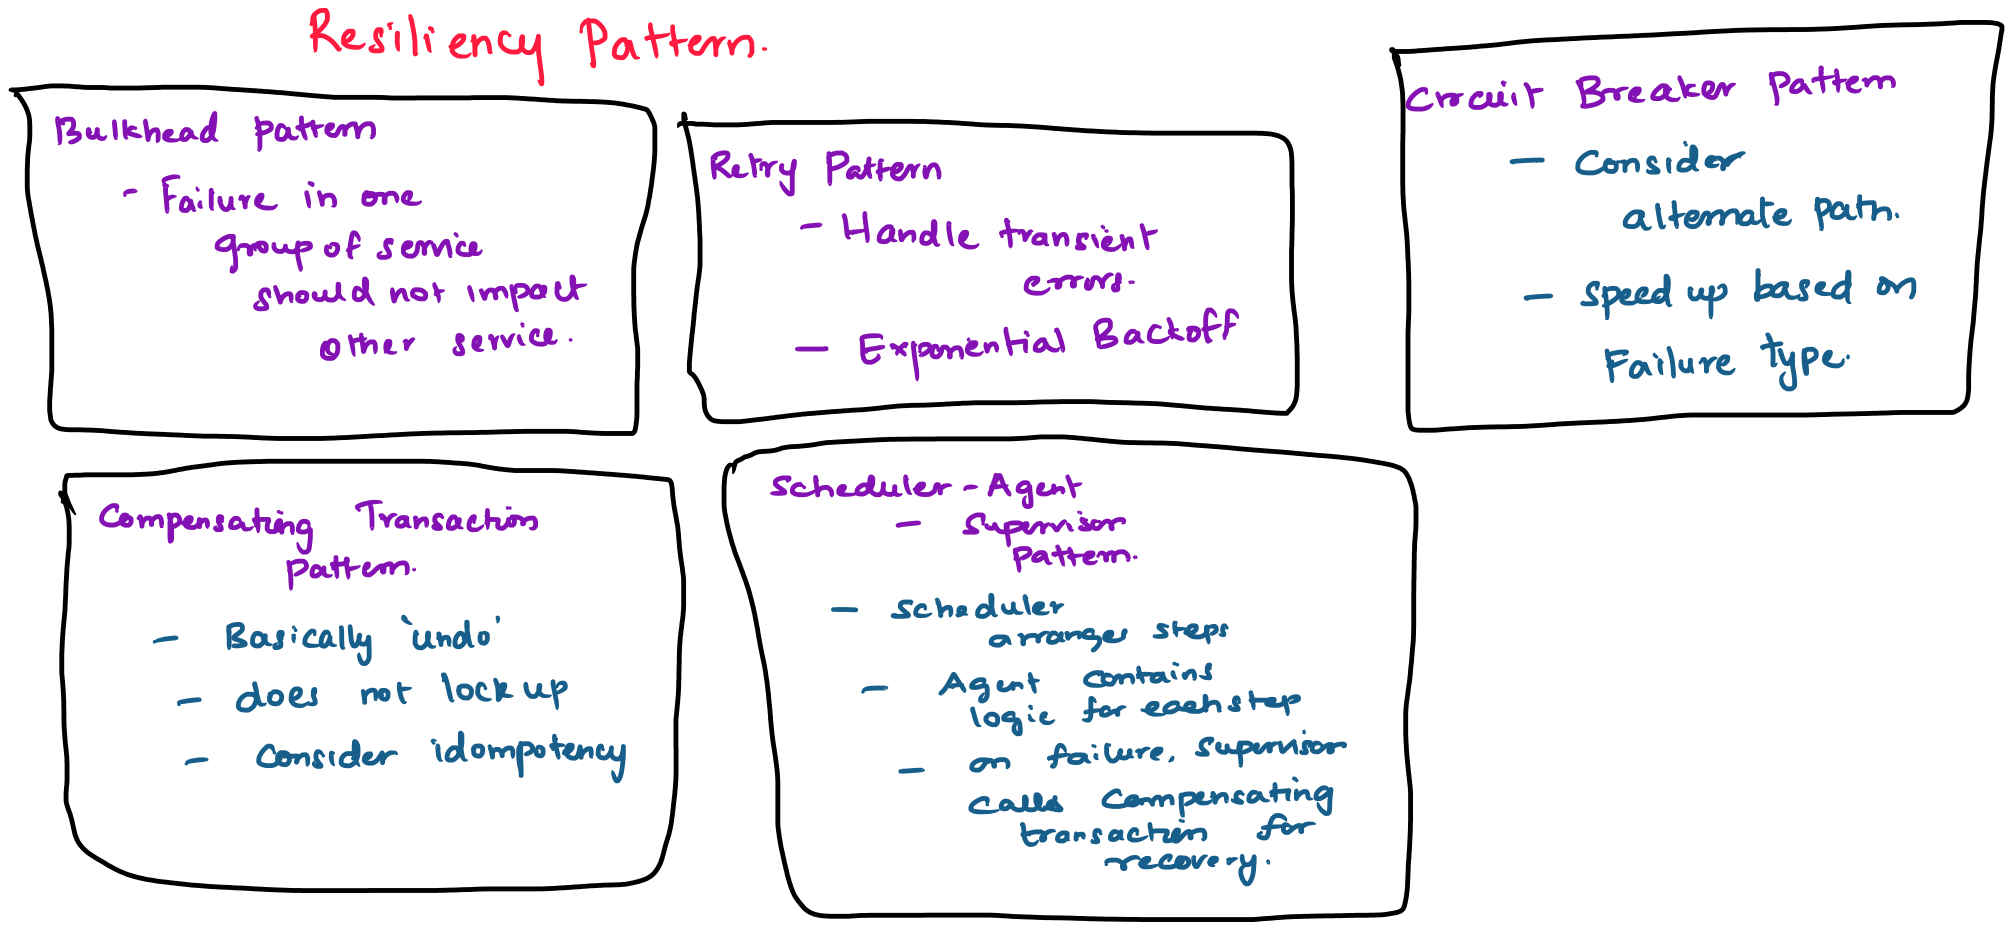 Resiliency Pattern.
Bulkhead pattern
- Failure in one
group of service
should not impact
other service.
Retry Pattern
- Handle transient
errors.
- Exponential Backoff
Circuit Breaker pattern
- Consider
alternate path.
- speed up based on
Failure type.
Compensating Transaction
pattern.
- Basically 'undo'
- does not lock up
- Consider idompotency
Scheduler - Agent
- Supervisor
pattern.
- scheduler
arranges steps
- Agent contains
logic for each step
- on failure, supervisor
calls compensating
transaction for
recovery.